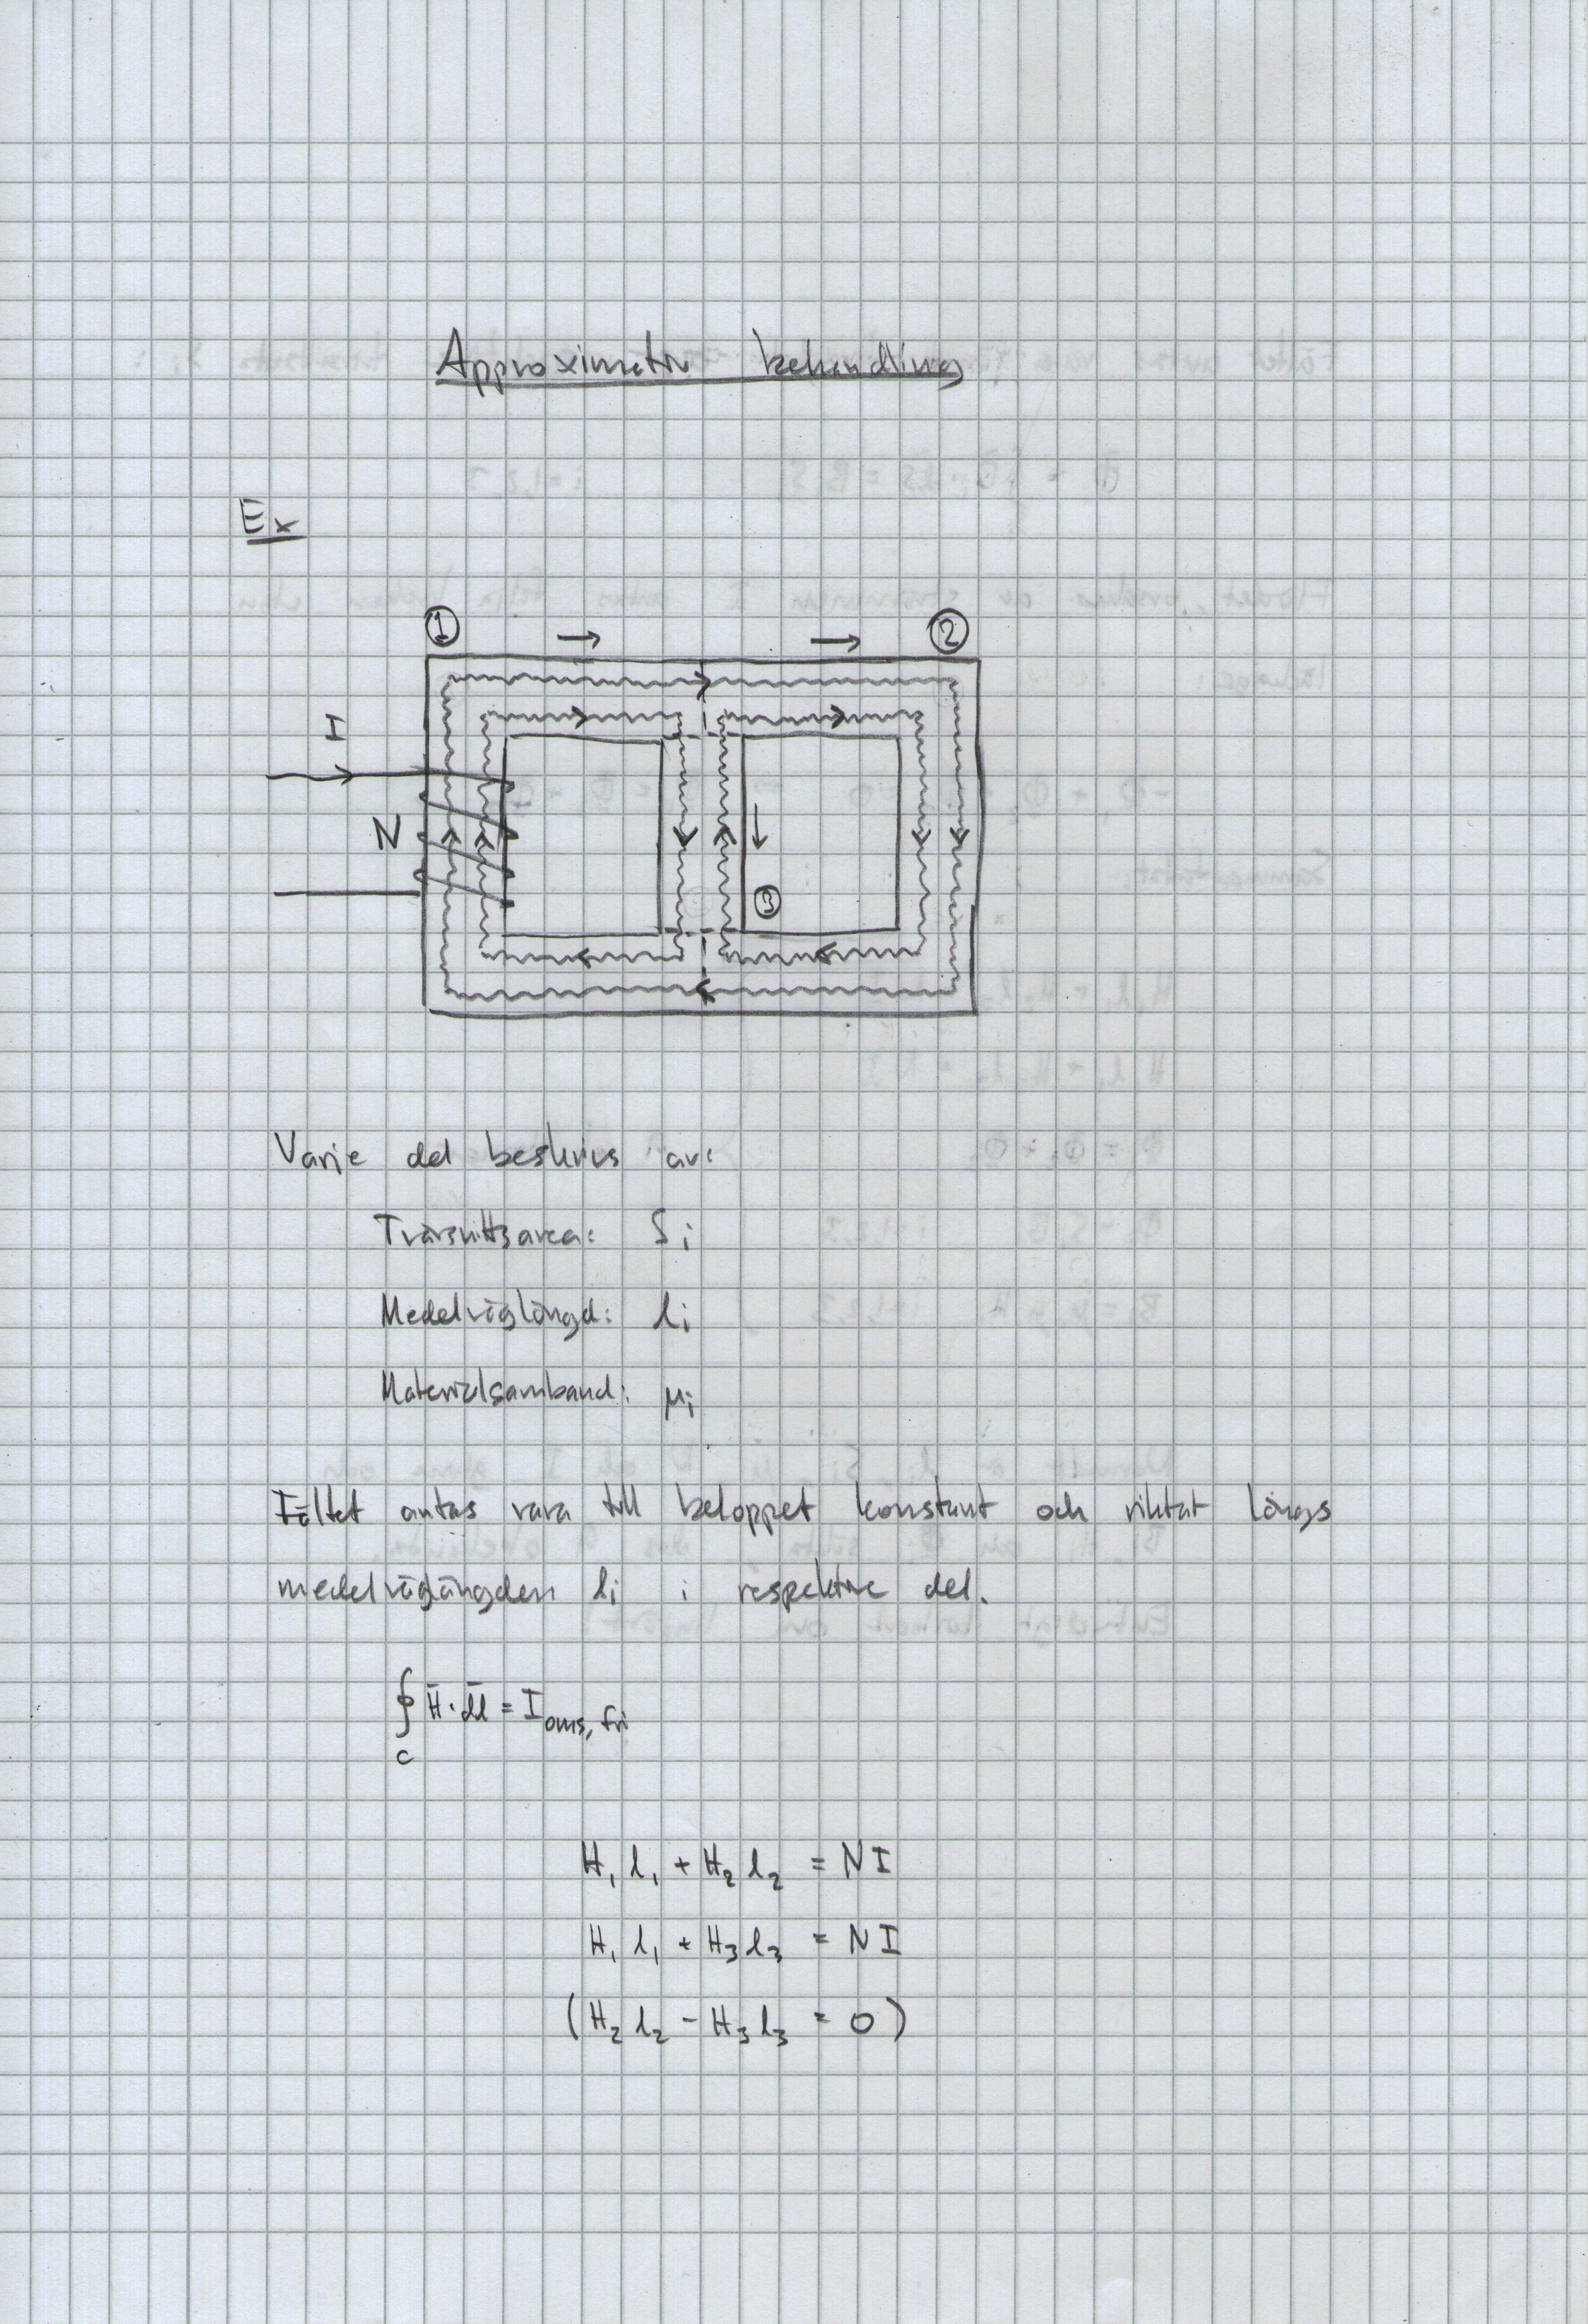 Approximativ behandling
Ex
① → → ②
I
N
③
Varje del beskrivs av:
Tvärsnittsarea: Si
Medelväglängd: li
Materialsamband: μi
Fältet antas vara till beloppet konstant och riktat längs
medelväglängden li i respektive del.
∮c H̄·dl̄ = I oms, fri
H₁ l₁ + H₂ l₂ = NI
H₁ l₁ + H₃ l₃ = NI
(H₂ l₂ - H₃ l₃ = 0)